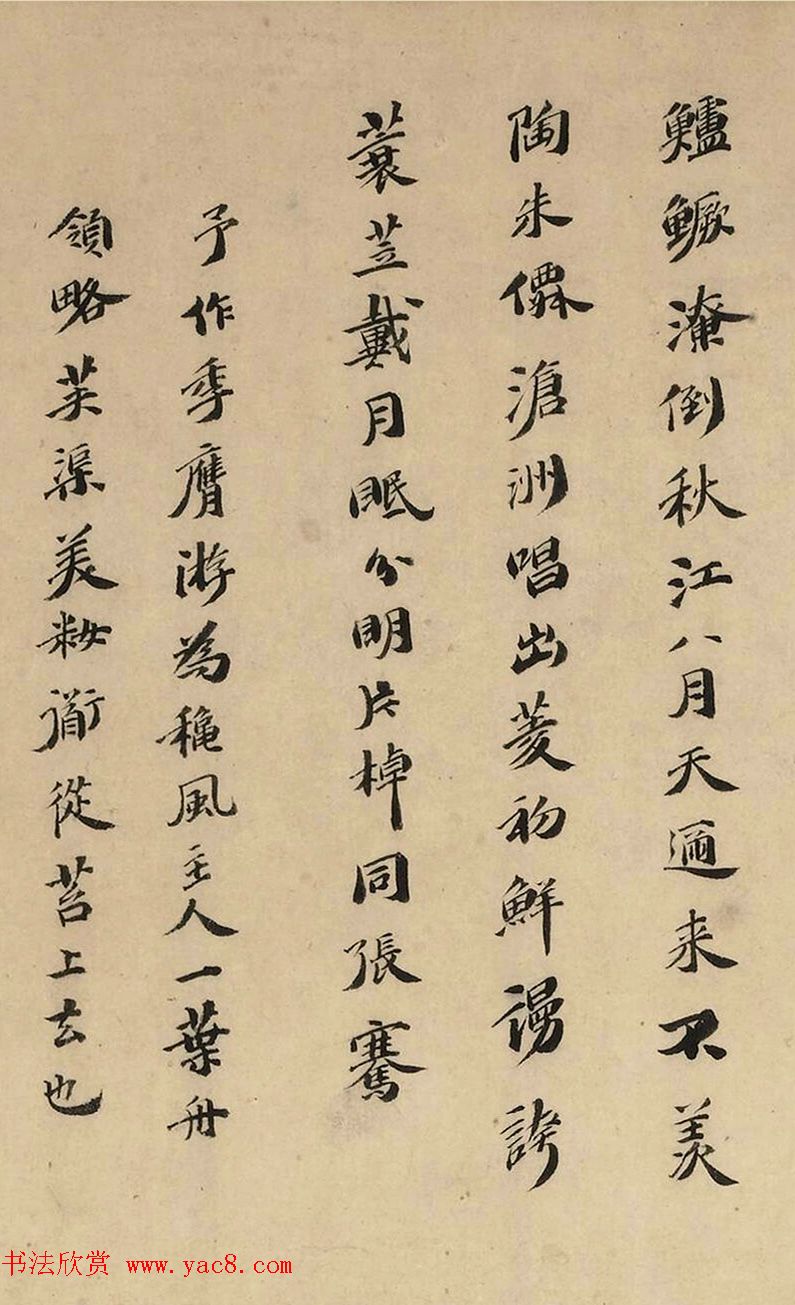 鱸鱖潦倒秋江八月天邇来不羡
陶朱僊滄洲唱出菱初鮮謾誇
蓑笠戴月眠分明片棹同張騫
予作季膺游為穐風主人一葉舟
領略芙渠美籹衜從苕上去也
书法欣赏 www.yac8.com